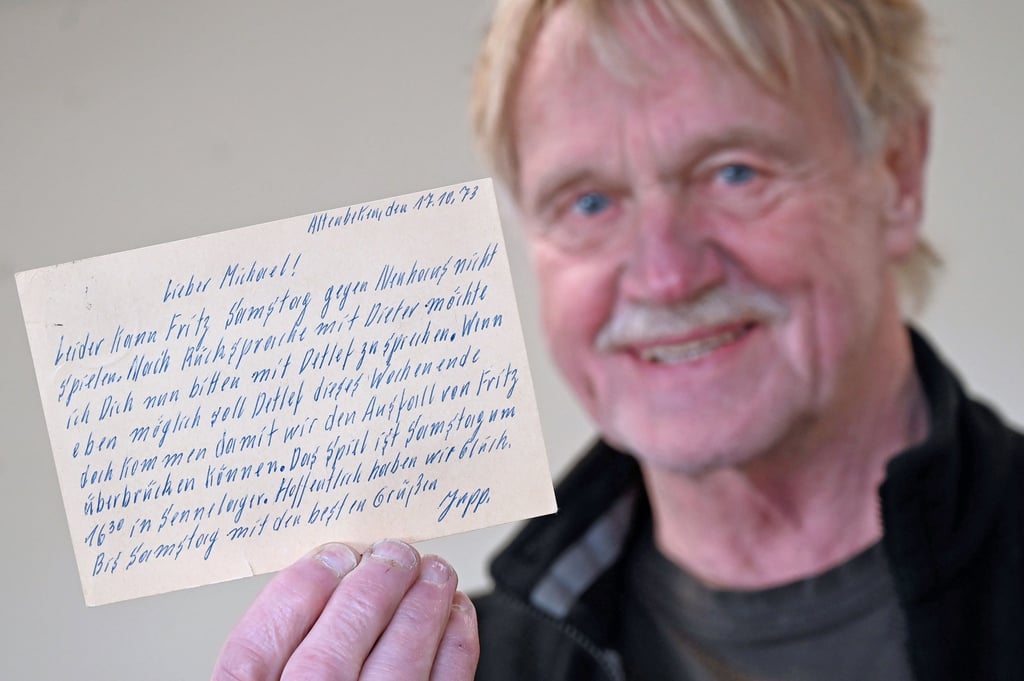 Altenbeken, den 17.10.73
Lieber Michael!
Leider kann Fritz Samstag gegen Neuhaus nicht
spielen. Nach Rücksprache mit Dieter möchte
ich Dich nun bitten mit Detlef zu sprechen. Wenn
eben möglich soll Detlef dieses Wochenende
doch kommen damit wir den Ausfall von Fritz
überbrücken können. Das Spiel ist Samstag um
16³⁰ in Sennelager. Hoffentlich haben wir Glück.
Bis Samstag mit den besten Grüßen
Japp.